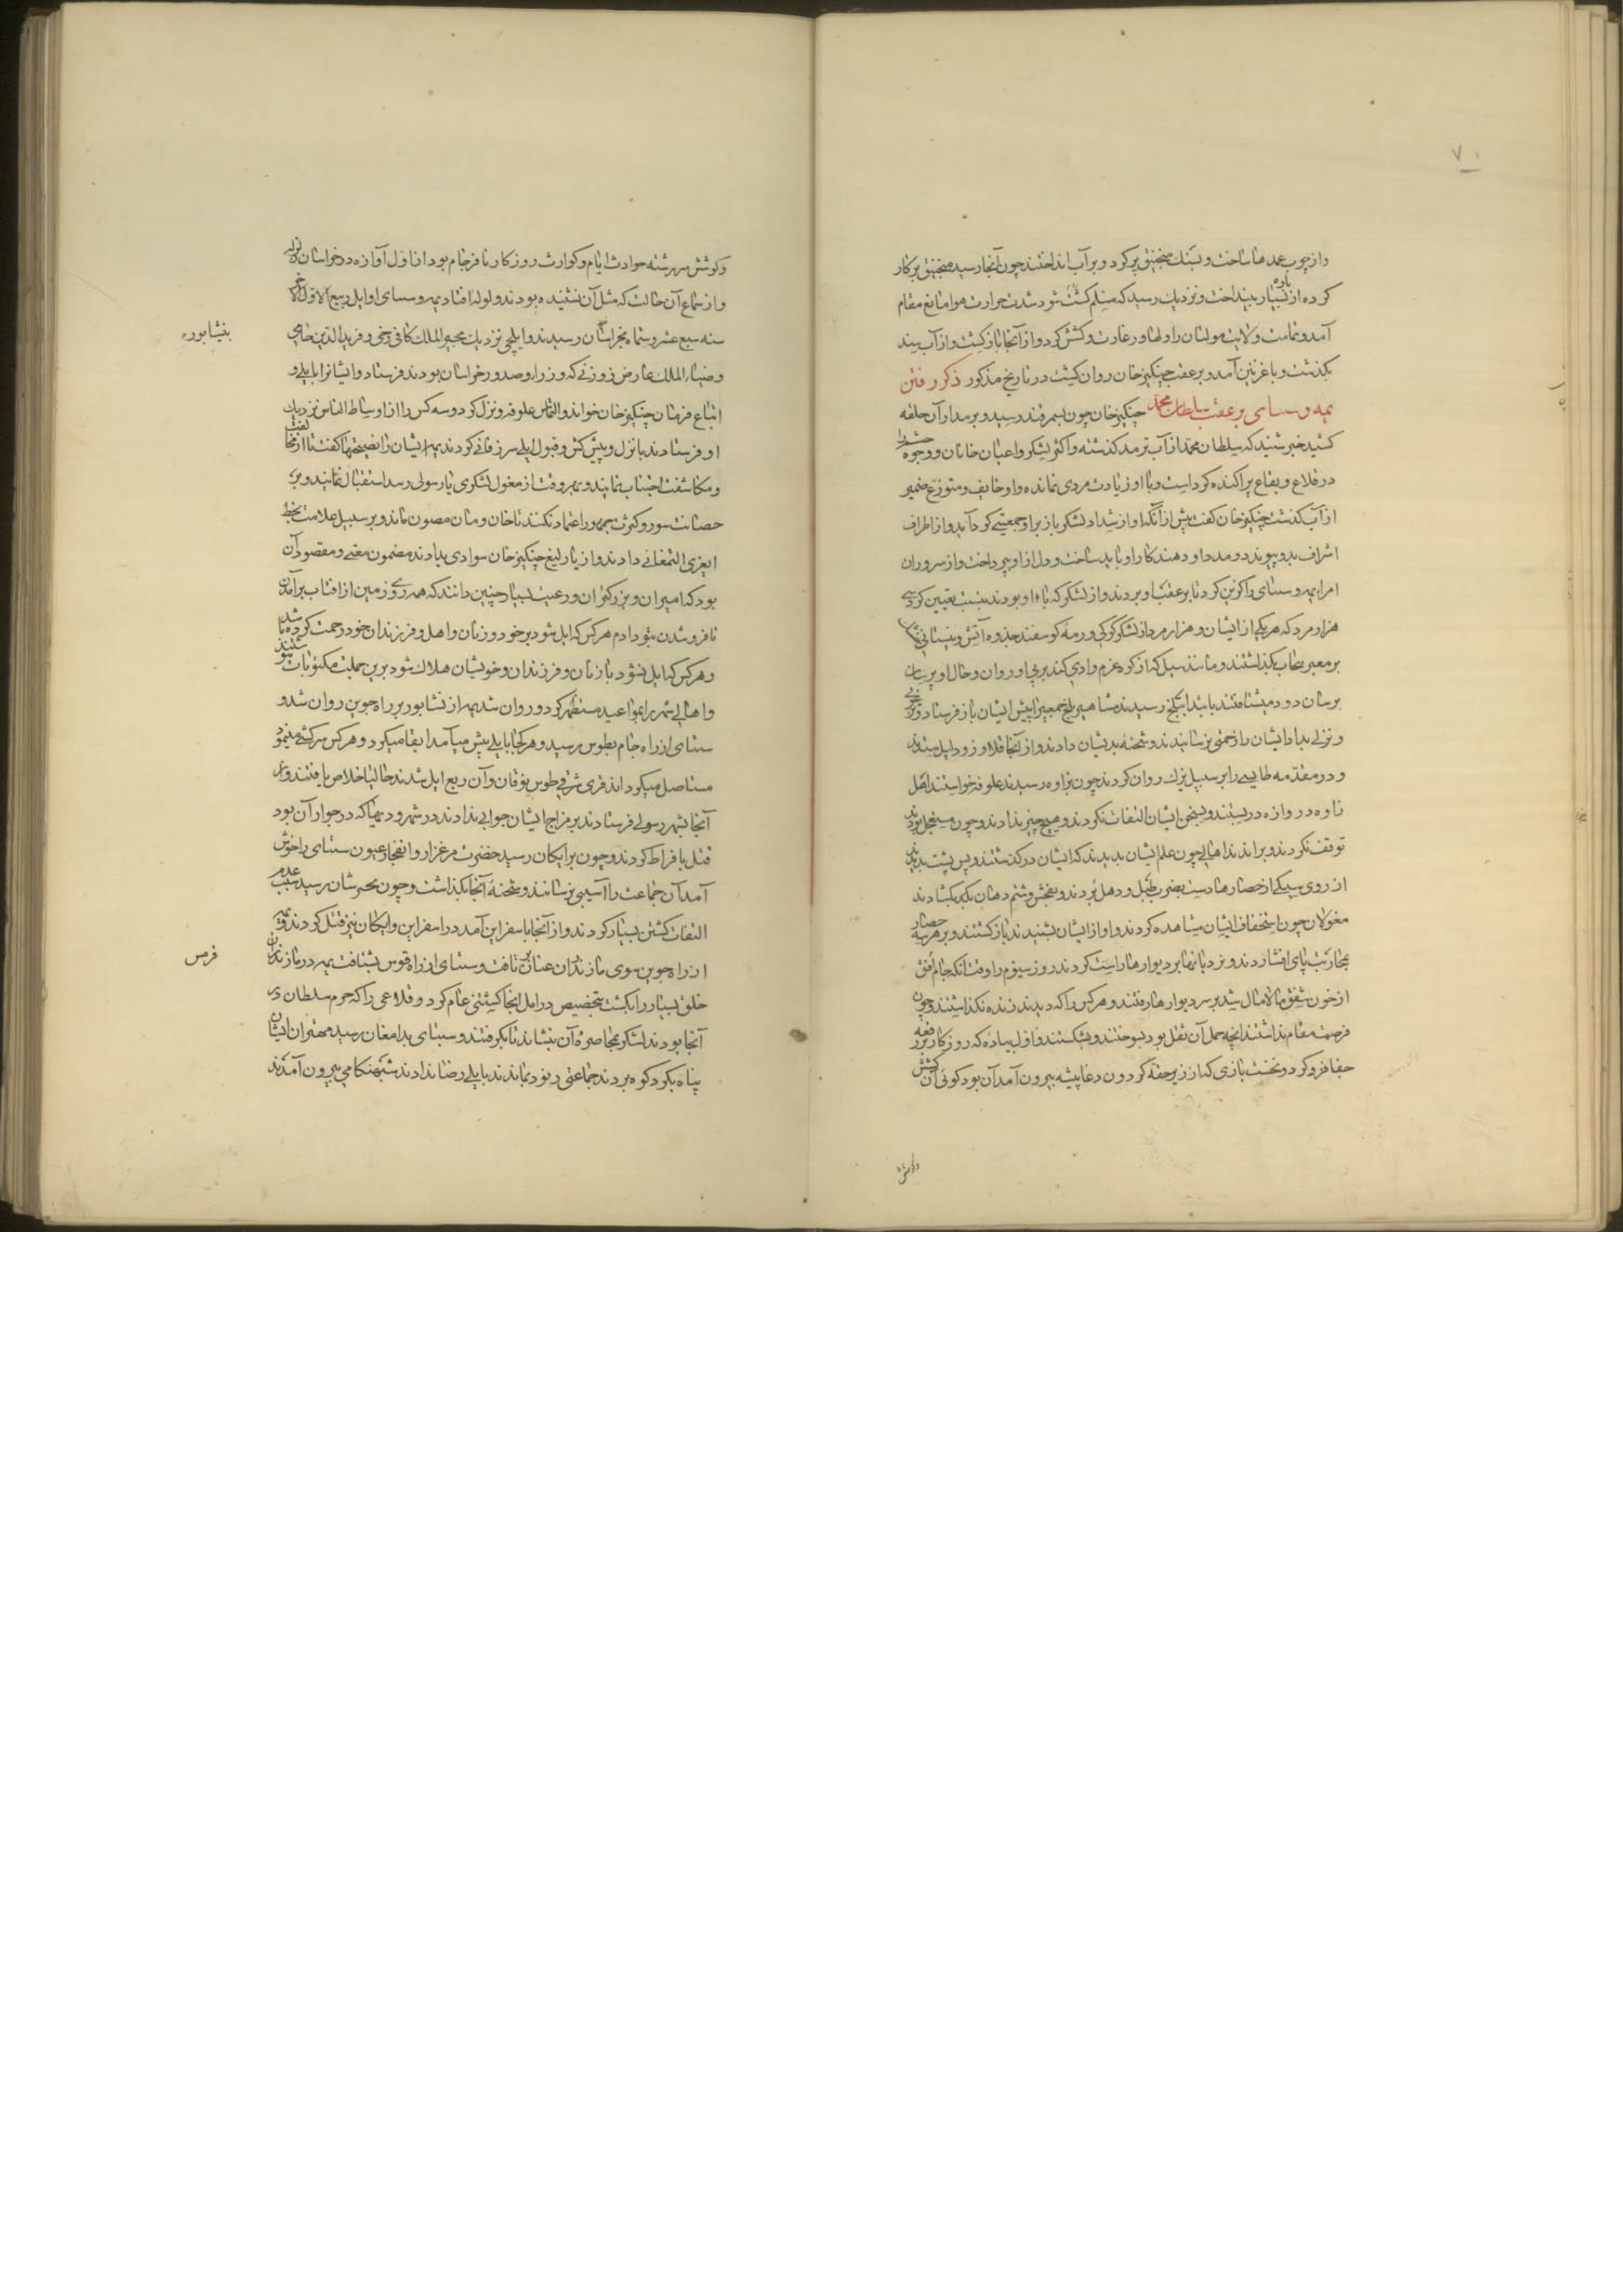 ۷۰
واز چوب عمدها ساخت و بسنک منجنیق پر کرد و بر آب انداختند چون آنجا رسید منجنیق بر کار
کرده از باره بسیار بینداخت و نزدیک رسید که مسلم کشت شود شدت حرارت هوا مانع مقام
آمد و تمامت ولایت مولتان و لهاور غارت و کشش کرد و از آنجا بازکشت و از آب سند
بکذشت و با غزنین آمد و بر عقب چنکیزخان روان کشت در تاریخ مذکور ذکر رفتن
یمه و سبتای بر عقب سلطان محمد چنکیزخان چون بسمرقند رسید و بر مدار آن حلقه
کشید خبر شنید که سلطان محمد از آب ترمد کذشته و اکثر لشکر و اعیان خانان و وجوه حشم را
در قلاع و بقاع پراکنده کرد است و با او زیادت مردی نمانده و او خایف و متوزع ضمیر
از آب کذشت چنکیزخان کفت پیش از آنکه او از شداد لشکر باز بر او جمعیتی کرد آید و از اطراف
اشراف بدو پیوندد و مدد او دهند کار او باید ساخت و دل از او بپرداخت و از سروران
امرا یمه و سبتای را کزین کرد تا بر عقب او بروند و از لشکر که با او بودند بنسبت تعیین کرد سی
هزار مرد که هر یکی از ایشان و هزار مرد از لشکر کوکی و رمه کوسفند جذوه آتش و نیستانی
بر معبر پنجاب بکذاشتند و مانند سیل که از کوه عزم وادی کند بر پی او روان و حال او پرسان
برسان دود میشتافتند بابتدا ببلخ رسیدند مشاهیر بلخ جمعی را پیش ایشان باز فرستادند و ترغو
و نزلی بداد ایشان را زحمتی نرسانیدند و شحنه بدیشان دادند و از آنجا قلاوز و دلیل ستدند
و در مقدمه طایسی را بر سبیل یزک روان کردند چون بزاوه رسیدند علوفه خواستند اهل
زاوه دروازه دربستند و بسخن ایشان التفات نکردند و هیچ چیز ندادند و چون مستعجل بودند
توقف نکردند و براندند اهالی چون علم ایشان بدیدند که ایشان درکذشتند و پس پشت بدیدند
از روی سبکی از حصارها دست بضرب طبل و دهل بردند و بفحش و شتم دهان بکشادند
مغولان چون استخفاف ایشان مشاهده کردند و اواز ایشان بشنیدند بازکشتند و بر هر سه حصار
بمحاربت پای افشاردند و نردبانها بر دیوارها راست کردند روز سیوم را وقت آنکه جام افق
از خون شفق مالامال شد بر سر دیوارها رفتند و هر کس را که دیدند زنده نکذاشتند و چون
فرصت مقام نداشتند انچه حمل آن ثقل بود بسوختند و بشکستند و اول پیاده که روزکار بر رقعه
جفا فرو کرد و نخست بازی که از زیر حقه کردون دغاپیشه بیرون آمد آن بود کوئی آن کشش
وکوشش
وکوشش سررشته حوادث ایام و کوارث روزکار نافرجام بود از اول آوازه در خراسان
و از سماع آن حالت که مثل آن نشنیده بودند ولوله افتاد یمه و سبتای اوایل ربیع الاول
سنه سبع عشر و ستمایه بخراسان رسیدند و ایلچی نزدیک مجیر الملک کافی رخی و فرید الدین جامی
و ضیاء الملک عارض زوزنی که وزراء و صدور خراسان بودند فرستاد و ایشانرا بایلی و
اتباع فرمان چنکیزخان خواند و التماس علوفه و نزل کرد دو سه کس را از اوساط الناس نزدیک
او فرستادند با نزل و پیش کش و قبول ایلی سرزفانی کردند یمه ایشان را نصیحتها کفت تا از مخالفت
و مکاشفت اجتناب نمایند و بهر وقت از مغول لشکری یا رسولی رسد استقبال نمایند و بر
حصانت سور و کثرت جمهور اعتماد نکنند تا خان و مان مصون ماند و بر سبیل علامت بخط
ایغری التمغائی دادند و از یارلیغ چنکیزخان سوادی بدادند مضمون معنی و مقصود آن
بود که امیران و بزرکتران و رعیت بسیار چنین دانند که همه روی زمین از افتاب برآمدن
تا فرو شدن بتو دادم هر کس که ایل شود بر خود و زنان و اهل و فرزندان خود رحمت کرده باشد
و هر کس که ایل نشود با زنان و فرزندان و خویشان هلاک شود برین جملت مکتوبات
و اهالی شهر را بمواعید مستظهر کرد و روان شد یمه از نشابور بر راه جوین روان شد و
سبتای از راه جام بطوس رسید و هر کجا بایلی پیش میآمد ابقا میکرد و هر کس سرکشی مینمود
مستاصل میکرداند قری شرقی طوس نوقان و آن ربع ایل شدند حالیا خلاص یافتند و از
آنجا بشهر رسولی فرستادند بر مزاج ایشان جوابی ندادند در شهر و دیها که در جوار آن بود
قتل بافراط کردند و چون برایکان رسید خضرت مرغزار و انفجار عیون سبتای را خوش
آمد آن جماعت را آسیبی نرسانید و شحنه آنجا بکذاشت و چون بخبوشان رسید سبب عدم
التفات کشتن بسیار کردند و از آنجا باسفراین آمد در اسفراین و ایکان نیز قتل کردند و یمه
از راه جوین سوی مازندران عنان برتافت و سبتای از راه قومس بشتافت یمه در مازندران
خلق بسیار را بکشت بتخصیص در امل آنجا کشتنی عام کرد و قلاعی را که حرم سلطان در
آنجا بودند لشکر بمحاصره آن بنشاند تا بکرفتند و سبتای بدامغان رسید مهتران ایشان
پناه بکردکوه بردند جماعتی رنود بماندند بایلی رضا ندادند شبهنکامی بیرون آمدند
بنشابور